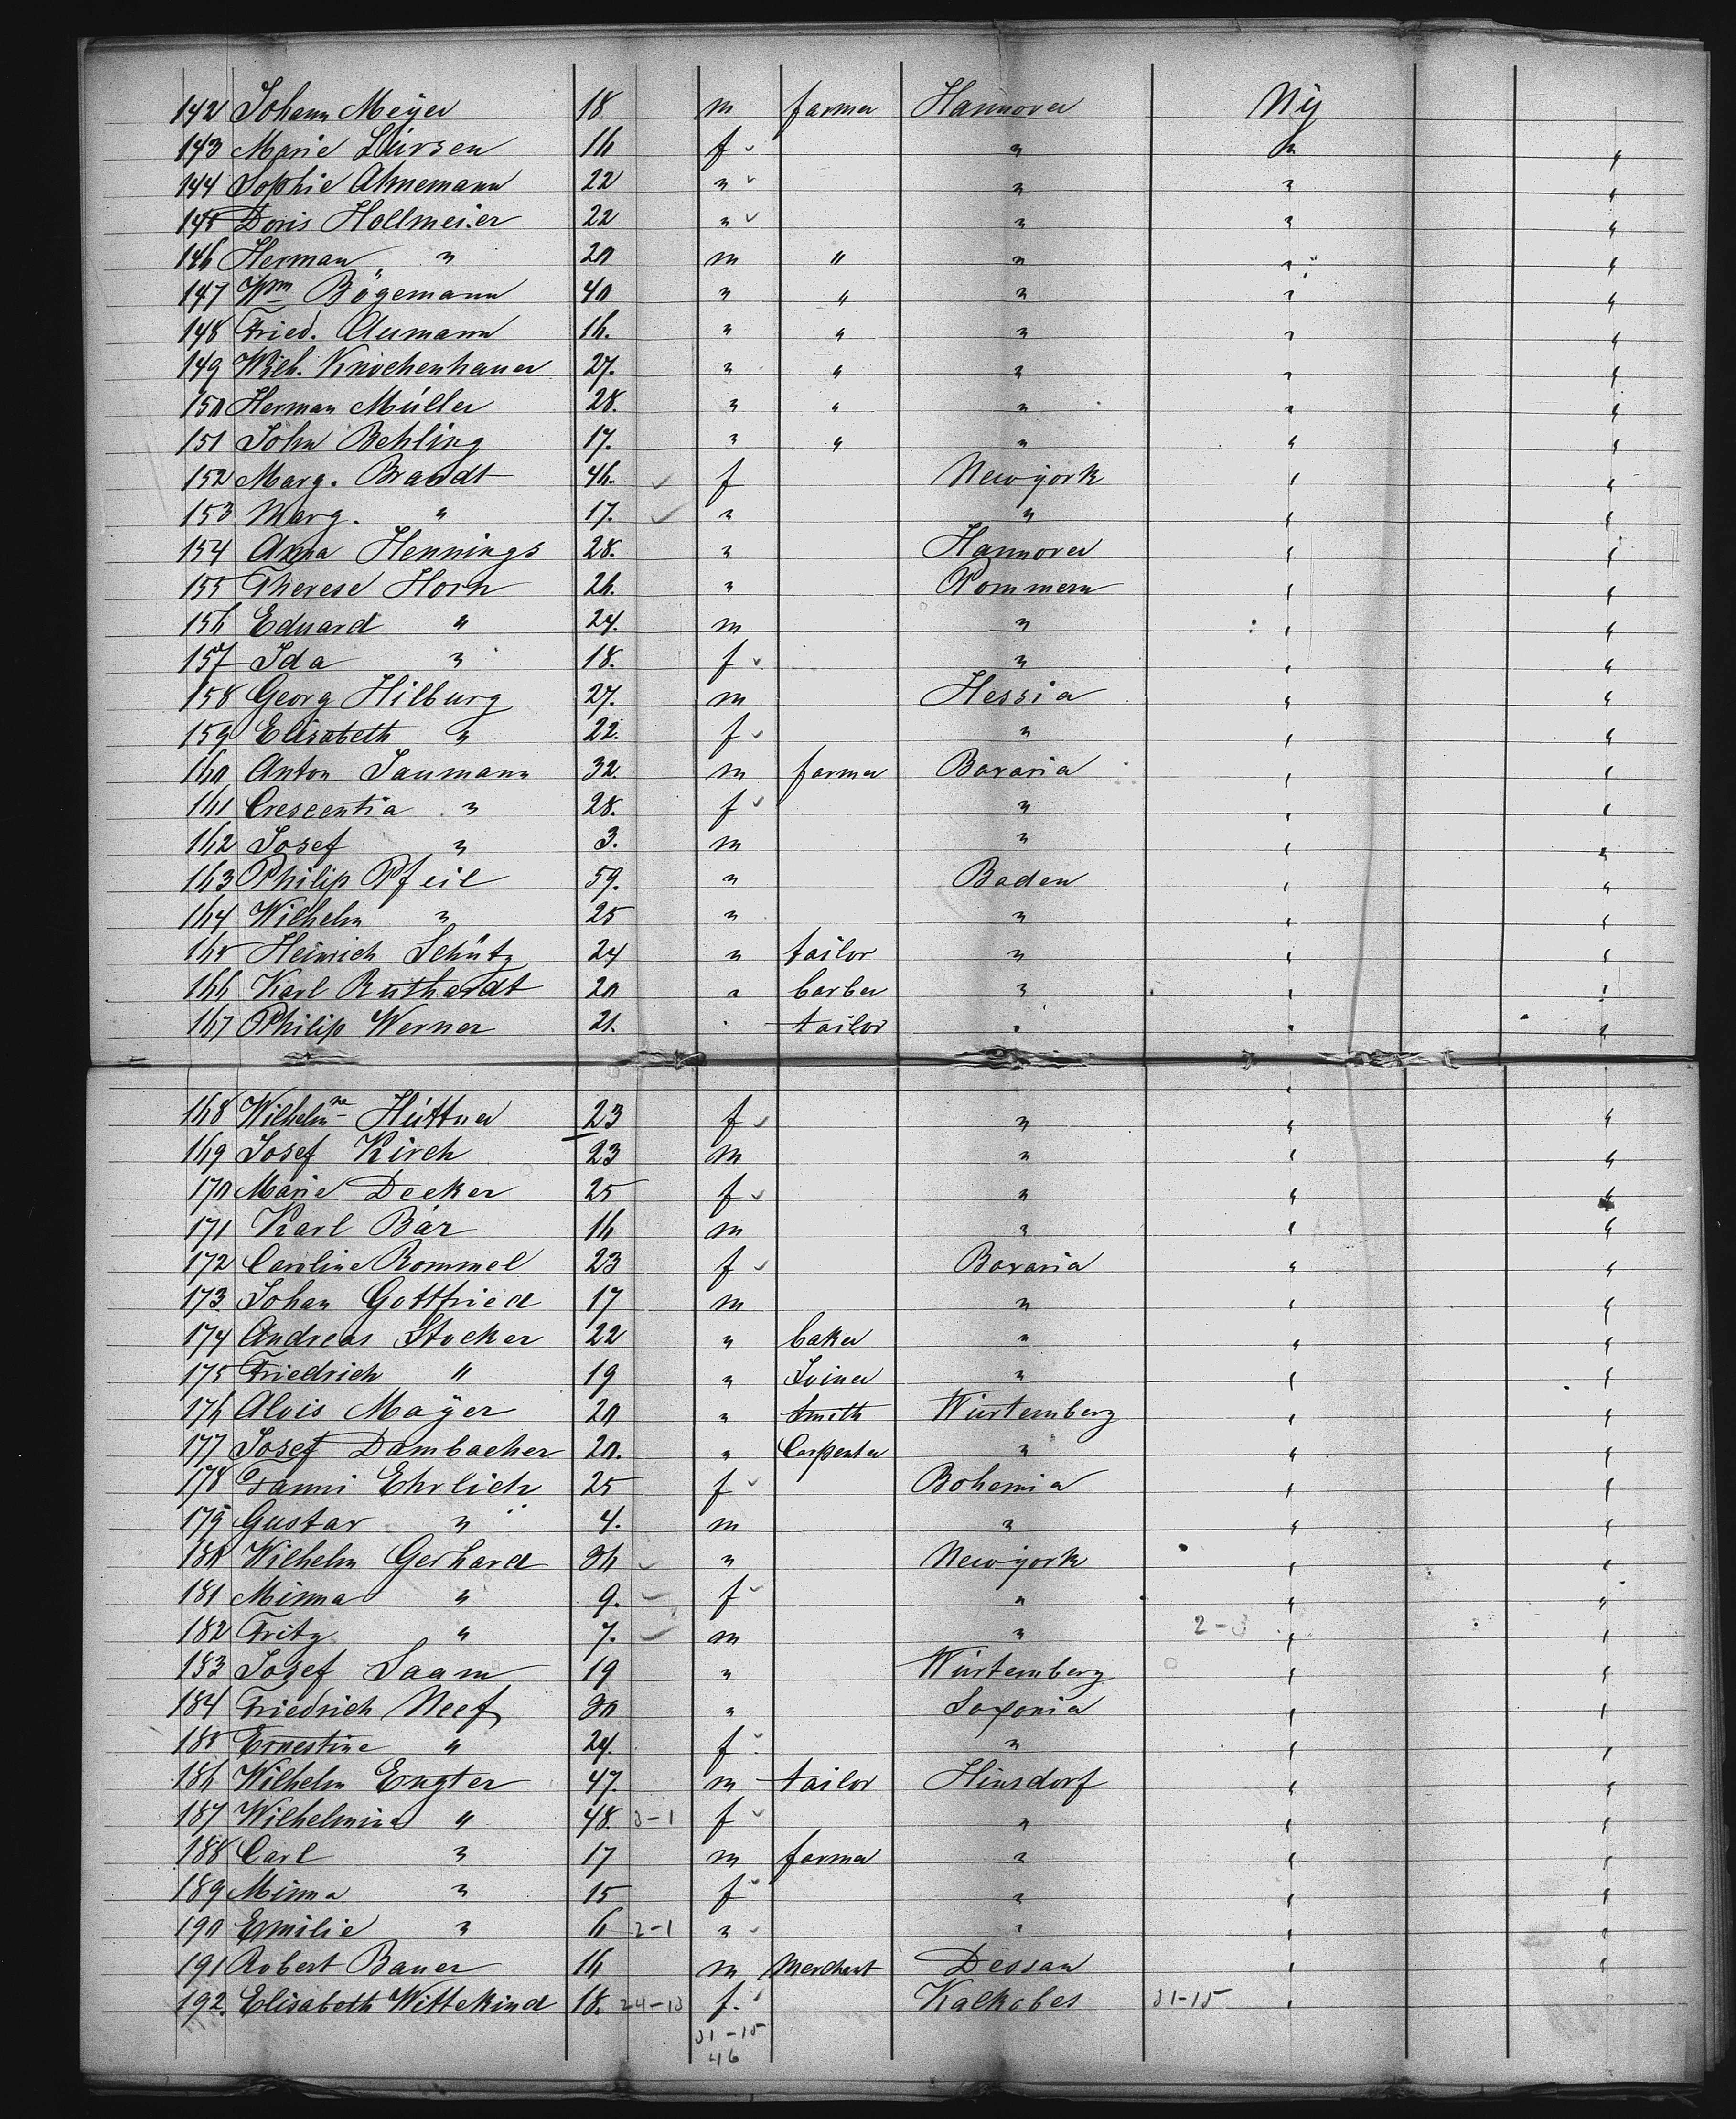 142 Johann Meÿer 18 m farmer Hannover NY
143 Marie Lürsen 16 f " " "
144 Sophie Ahnemann 22 " " " "
145 Doris Hollmeier 22 " " " "
146 Herman " 20 m " " " "
147 Wm Bögemann 40 " " " " "
148 Fried. Aumann 16. " " " " "
149 Wilh. Knochenhauer 27. " " " " "
150 Herman Müller 28. " " " " "
151 John Behling 17. " " " " "
152 Marg. Brandt 46. f Newyork " "
153 Marg. " 17. " " " "
154 Anna Hennings 28. " Hannover " "
155 Therese Horn 26. " Pommern " "
156 Eduard " 24. m " " "
157 Ida " 18. f " " "
158 Georg Hilburg 27. m Hessia " "
159 Elisabeth " 22. f " " "
160 Anton Saumann 32. m farmer Bavaria " "
161 Crescentia " 28. f " " "
162 Josef " 3. m " " "
163 Philip Pfeil 59. " Baden " "
164 Wilhelm " 25 " " " "
165 Heinrich Schütz 24 " tailor " " "
166 Karl Ruthardt 20 " barber " " "
167 Philip Werner 21. " tailor " " "
168 Wilhelmne Hüttner 23 f " " "
169 Josef Kirch 23 m " " "
170 Marie Decker 25 f " " "
171 Karl Bär 16 m " " "
172 Caroline Rommel 23 f Bavaria " "
173 Johan Gottfried 17 m " " "
174 Andreas Stocker 22 " baker " " "
175 Friedrich " 19 " Joiner " " "
176 Alois Mayer 20 " Smith Würtemberg " "
177 Josef Dambacher 20. " Carpenter " " "
178 Fanni Ehrlich 25 f Bohemia " "
179 Gustav " 4. m " " "
180 Wilhelm Gerhard 36 " Newyork " "
181 Minna " 9. f " " "
182 Fritz " 7. m " 2-3 " "
183 Josef Saam 19 " Würtemberg " "
184 Friedrich Neef 30 " Saxonia " "
185 Ernestine " 24. f " " "
186 Wilhelm Engter 47. m tailor Hinsdorf " "
187 Wilhelmina " 48. 3-1 f " " "
188 Carl " 17 m farmer " " "
189 Minna " 15 f " " "
190 Emilie " 6 2-1 " " " "
191 Robert Bauer 16 m Merchant Dessau " "
192. Elisabeth Wittekind 18. 24-13 f. Kalkobes 31-15 "
31-15
46